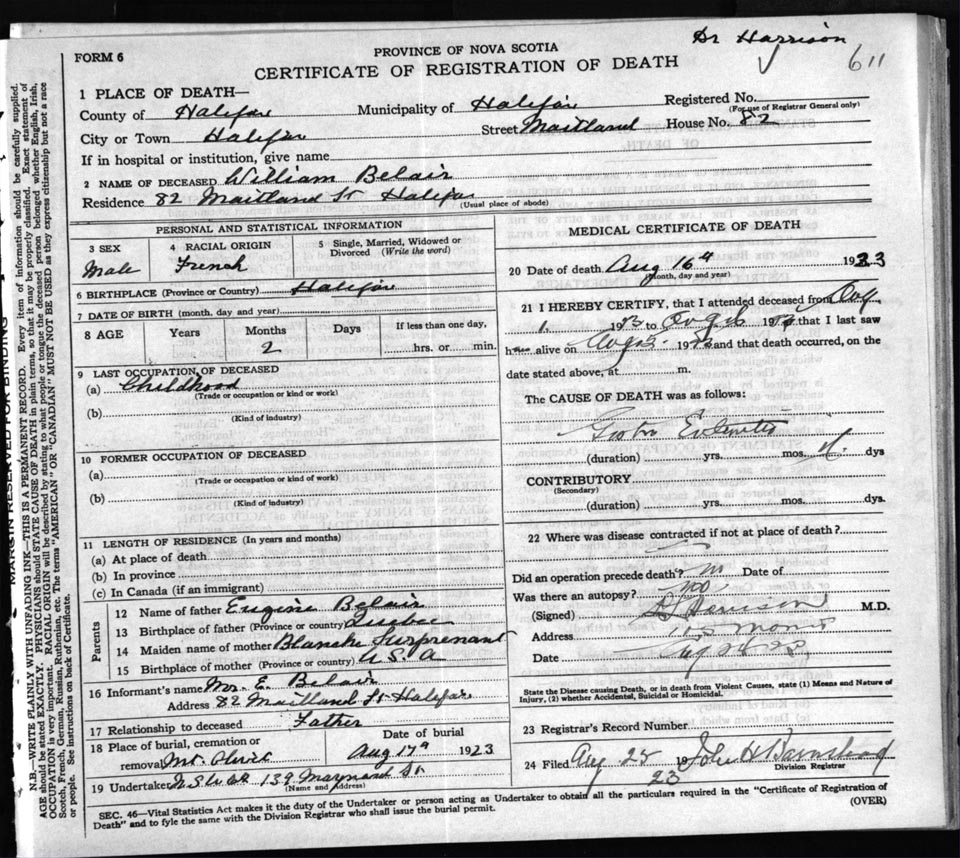 Dr Harrison
FORM 6
PROVINCE OF NOVA SCOTIA
611
CERTIFICATE OF REGISTRATION OF DEATH
1 PLACE OF DEATH—
County of Halifax Municipality of Halifax Registered No.
(For use of Registrar General only)
City or Town Halifax Street Maitland House No. 82
If in hospital or institution, give name
2 NAME OF DECEASED William Belair
Residence 82 Maitland St Halifax
(Usual place of abode)
PERSONAL AND STATISTICAL INFORMATION
3 SEX 4 RACIAL ORIGIN 5 Single, Married, Widowed or Divorced (Write the word)
Male French
6 BIRTHPLACE (Province or Country) Halifax
7 DATE OF BIRTH (month, day and year)
8 AGE Years Months Days If less than one day,
2 hrs. or min.
9 LAST OCCUPATION OF DECEASED
(a) Childhood
(Trade or occupation or kind or work)
(b)
(Kind of industry)
10 FORMER OCCUPATION OF DECEASED
(a)
(Trade or occupation or kind of work)
(b)
(Kind of industry)
11 LENGTH OF RESIDENCE (In years and months)
(a) At place of death
(b) In province
(c) In Canada (if an immigrant)
Parents
12 Name of father Eugine Belair
13 Birthplace of father (Province or country) Quebec
14 Maiden name of mother Blanche Surprenant
15 Birthplace of mother (Province or country) U.S.A
16 Informant's name Mr. E. Belair
Address 82 Maitland St Halifax
17 Relationship to deceased Father
18 Place of burial, cremation or removal Mt. Olivet Date of burial Aug 17th 1923
19 Undertaker 139 Maynard St.
(Name and Address)
MEDICAL CERTIFICATE OF DEATH
20 Date of death Aug 16th 1923
(Month, day and year)
21 I HEREBY CERTIFY, that I attended deceased from
1, 1923 to 192 that I last saw
h alive on 192 and that death occurred, on the
date stated above, at m.
The CAUSE OF DEATH was as follows:
Gastro
(duration) yrs. mos. dys
CONTRIBUTORY
(Secondary)
(duration) yrs. mos. dys.
22 Where was disease contracted if not at place of death?
Did an operation precede death? no Date of
Was there an autopsy? no
(Signed) Harrison M.D.
Address
Date
State the Disease causing Death, or in death from Violent Causes, state (1) Means and Nature of
Injury, (2) whether Accidental, Suicidal or Homicidal.
23 Registrar's Record Number
24 Filed Aug 25 19 23 John H Barnstead
Division Registrar
SEC. 46—Vital Statistics Act makes it the duty of the Undertaker or person acting as Undertaker to obtain all the particulars required in the "Certificate of Registration of
Death" and to fyle the same with the Division Registrar who shall issue the burial permit.
(OVER)
MARGIN RESERVED FOR BINDING
N.B.—WRITE PLAINLY WITH UNFADING INK—THIS IS A PERMANENT RECORD. Every item of information should be carefully supplied.
AGE should be stated EXACTLY. PHYSICIANS should STATE CAUSE OF DEATH in plain terms, so that it may be properly classified. Exact statement of
OCCUPATION is very important. RACIAL ORIGIN will be described by stating to what people or tongue the deceased person belonged whether English, Irish,
Scotch, French, German, Russian, Ruthenian, etc. The terms "AMERICAN" OR "CANADIAN" MUST NOT BE USED as they express citizenship but not a race
or people. See instructions on back of Certificate.